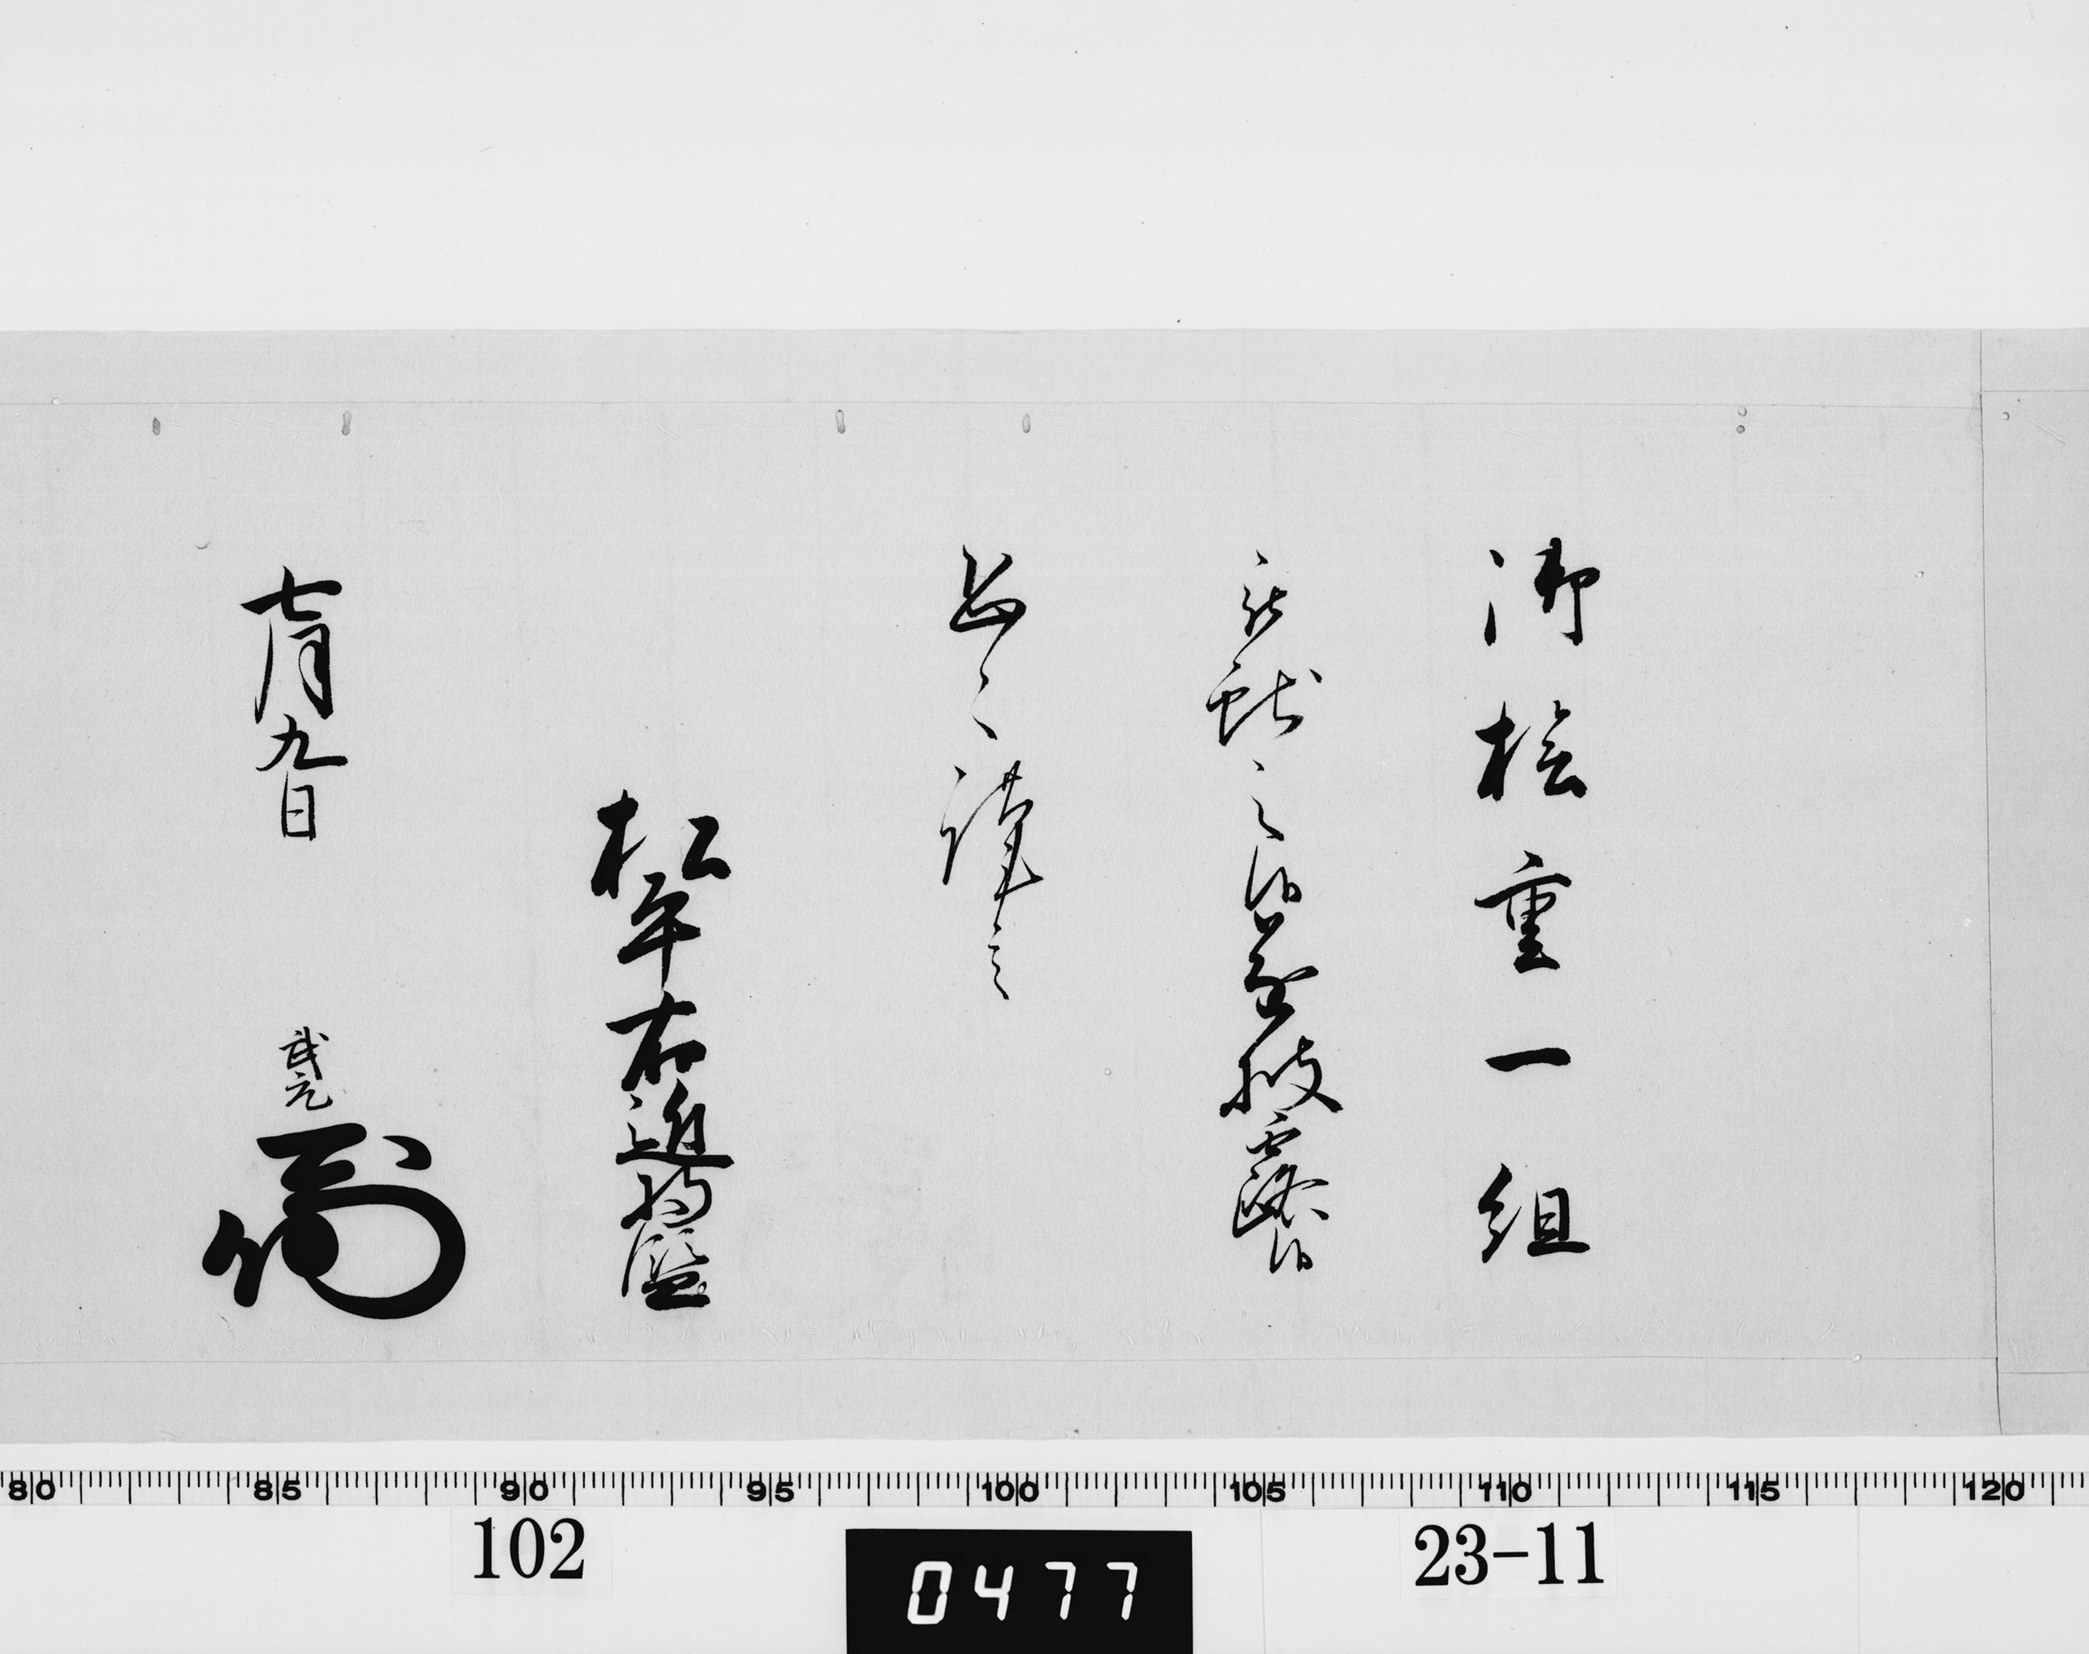 御桧重一組
被献之候並致披露候
恐々謹言
松平右近将監
七月九日 武元
80 85 90 95 100 105 110 115 120
102
0477
23-11